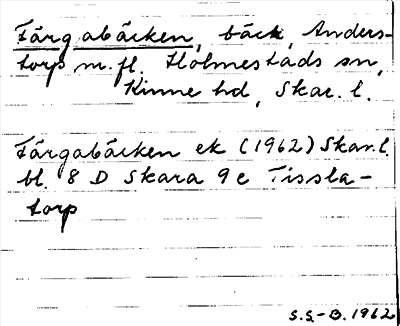 Färgabäcken, bäck, Anders-
torp m.fl. Holmestads sn,
Kinne hd, Skar. l.
Färgabäcken ek (1962) Skar. l.
bl. 8 D Skara 9 e Tissla-
torp
S.S.-B. 1962